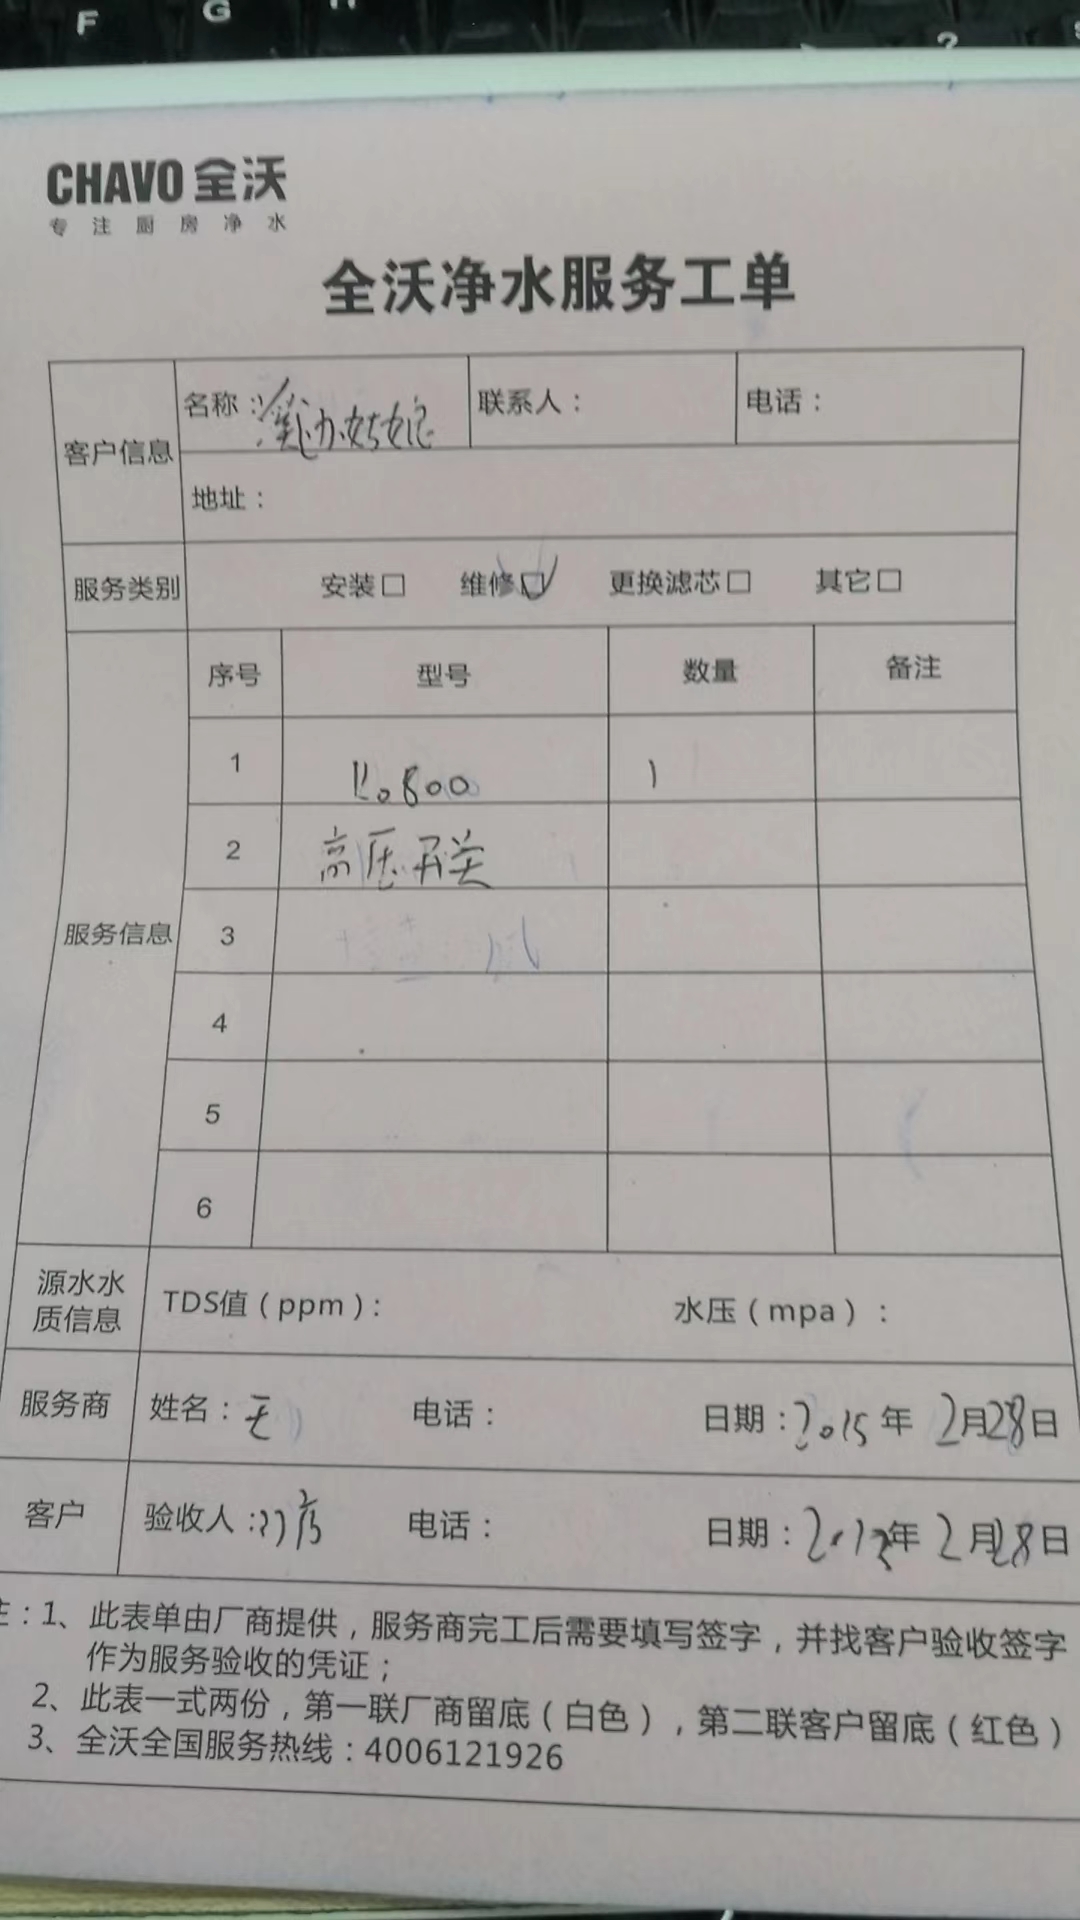 F G H
?
CHAVO 全沃
专注厨房净水
全沃净水服务工单
客户信息 名称: 姑娘 联系人: 电话:
地址:
服务类别 安装□ 维修☑ 更换滤芯□ 其它□
服务信息 序号 型号 数量 备注
1 R0800 1
2 高压开关
3
4
5
6
源水水质信息 TDS值(ppm): 水压(mpa):
服务商 姓名: 王 电话: 日期: 2015年2月28日
客户 验收人: 电话: 日期: 年2月28日
注:1、此表单由厂商提供,服务商完工后需要填写签字,并找客户验收签字
作为服务验收的凭证;
2、此表一式两份,第一联厂商留底(白色),第二联客户留底(红色)
3、全沃全国服务热线:4006121926